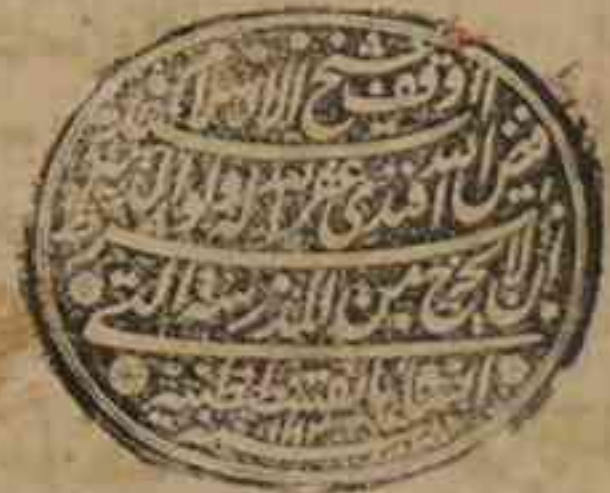 اوقف شيخ الاسلام السيد
فيض الله افندى غفر الله له ولوالديه
بشرط ان لا يخرج من المدرسة التى
انشأها بقسطنطينية